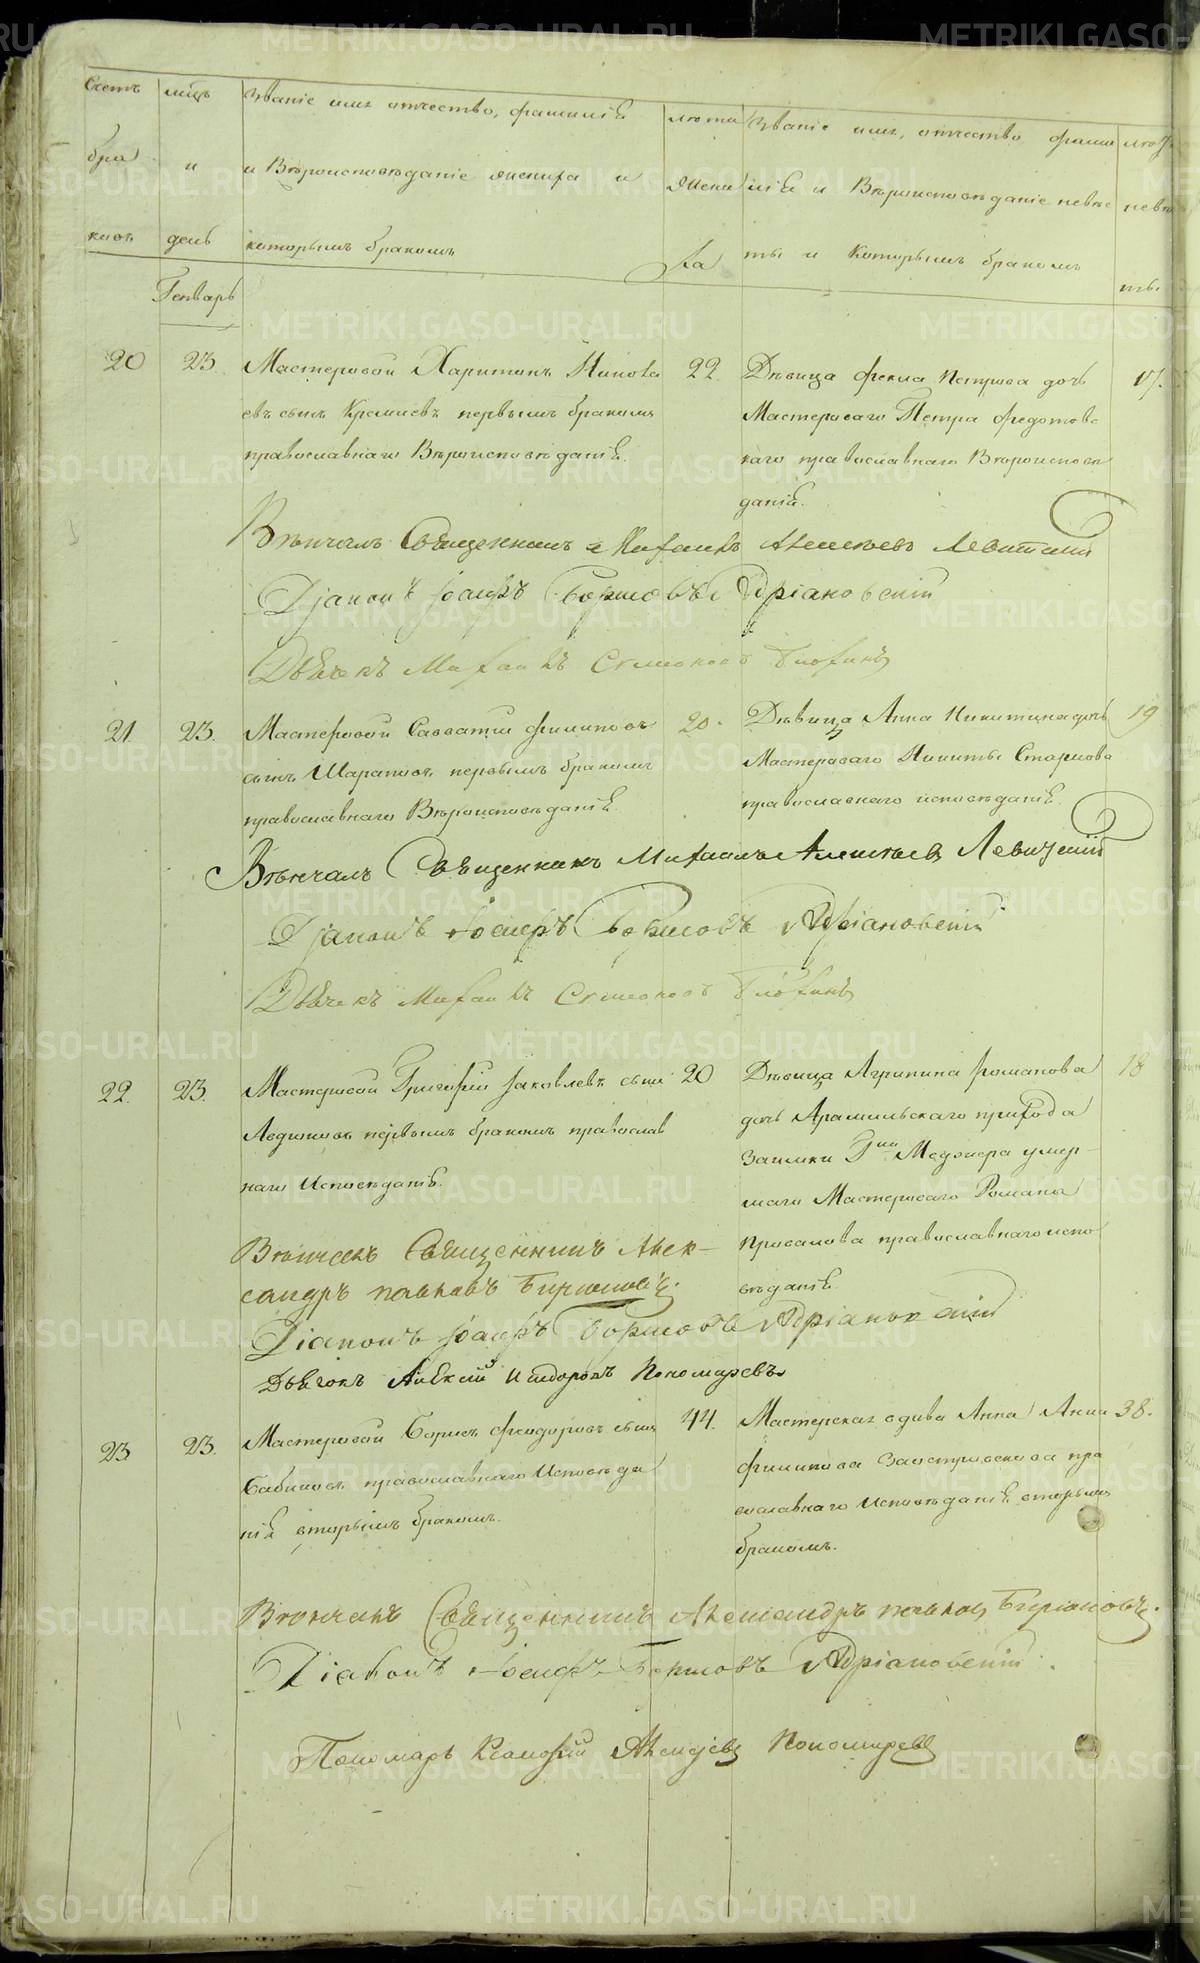 Счетъ бра ковъ
мцъ и день
Званіе имя отчество, фамилія
и Вѣроисповѣданіе жениха и
которымъ бракомъ
лета жени ха
Званіе имя, отчество фами
лія и Вѣроисповѣданіе невѣс
ты и Которымъ бракомъ
невѣ
Генварь
20 23. Мастеровой Харитонъ
евъ сынъ первымъ бракомъ
православнаго Вѣроисповѣданія.
22.
Дѣвица Фекла Петрова дочь
Мастероваго Петра Федотовс
каго православнаго Вѣроисповѣ
данія.
17.
Вѣнчалъ Священникъ Михаилъ Алексѣевъ Левитскій
Діаконъ Іосифъ Борисовъ Адріановскій
Дьячекъ Михаилъ Семеновъ
21. 23. Мастеровой Савватій Филиповъ
сынъ Шараповъ первымъ бракомъ
православнаго Вѣроисповѣданія.
20.
Дѣвица Анна Никитина дочь
Мастероваго Никиты Старкова
православнаго исповѣданія.
19
Вѣнчалъ Священникъ Михаилъ Алексѣевъ Левицкій
Діаконъ Іосифъ Борисовъ Адріановскій
Дьячекъ Михаилъ Семеновъ
22. 23. Мастеровой Григорій Яковлевъ сынъ
первымъ бракомъ православ
наго Исповѣданія.
20
Дѣвица Агрипина Романова
дочь Арамильскаго прихода
Заимки Гна Меджера умер-
шаго Мастероваго Романа
православнаго испо
вѣданія.
18
Вѣнчалъ Священникъ Алек-
сандръ Павловъ Бирюковъ.
Діаконъ Іосифъ Борисовъ Адріановскій
Дьячокъ Алексій Пономаревъ
23 23. Мастеровой Борисъ Феодоровъ сынъ
Бабиновъ православнаго Исповѣда
нія вторымъ бракомъ.
44.
Мастерская вдова Анна
Филипова Заостровскова пра
вославнаго Исповѣданія вторымъ
бракомъ.
38.
Вѣнчалъ Священникъ Александръ Павловъ Бирюковъ.
Діаконъ Іосифъ Борисовъ Адріановскій.
Пономарь Алексѣевъ Пономаревъ
METRIKI.GASO-URAL.RU